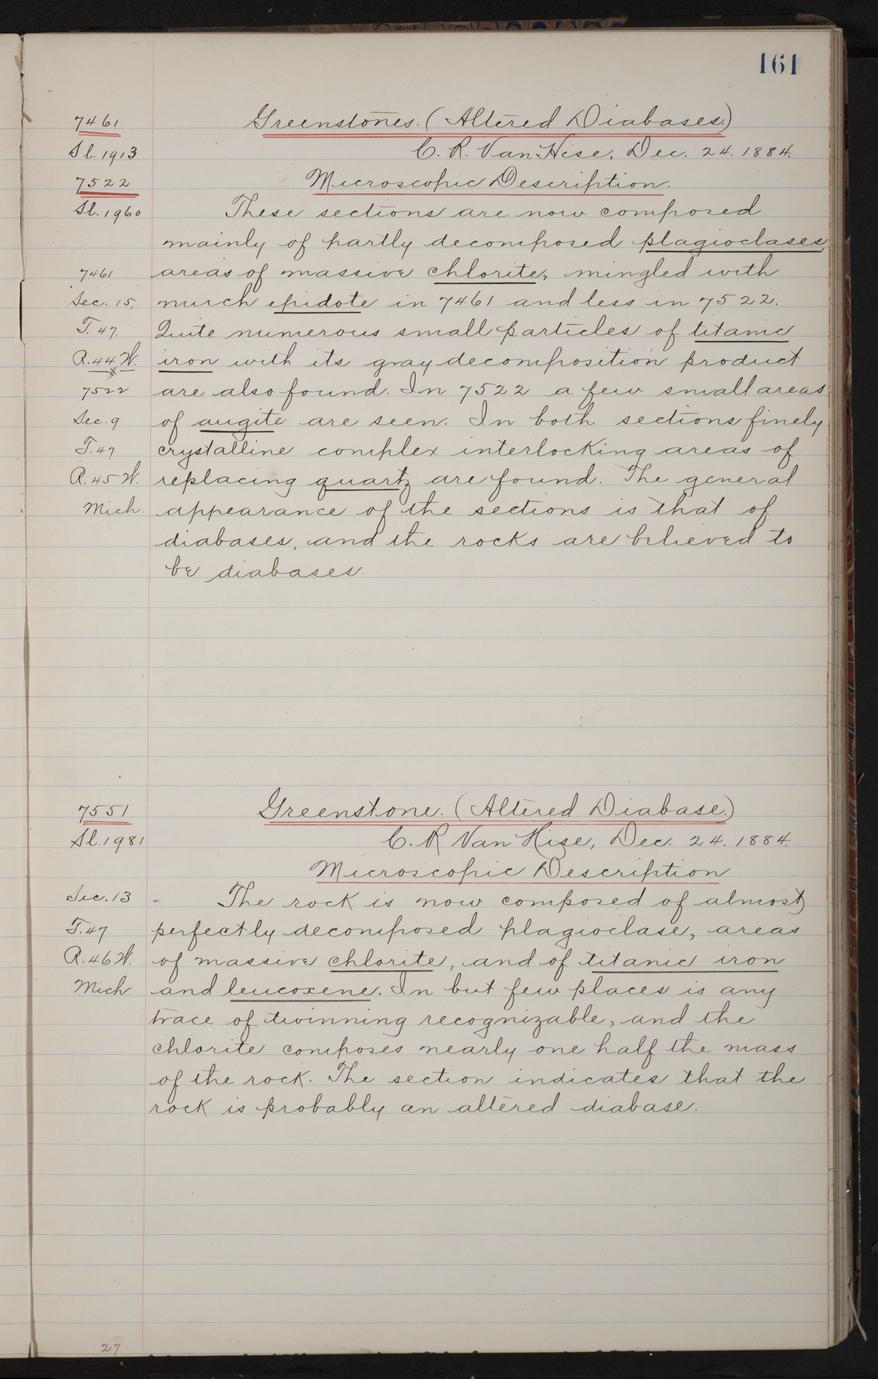 161
7461 Greenstones. (Altered Diabases.)
Sl. 1913 C. R. Van Hise, Dec. 24. 1884.
7522 Microscopic Description.
Sl. 1960 These sections are now composed
mainly of partly decomposed plagioclases
7461 areas of massive chlorite, mingled with
Sec. 15, much epidote in 7461 and less in 7522.
T. 47. Quite numerous small particles of titanic
R. 44 W. iron with its gray decomposition product
7522 are also found. In 7522 a few small areas
Sec. 9 of augite are seen. In both sections finely
T. 47 crystalline complex interlocking areas of
R. 45 W. replacing quartz are found. The general
Mich. appearance of the sections is that of
diabases, and the rocks are believed to
be diabases.
7551 Greenstone. (Altered Diabase.)
Sl. 1981 C. R Van Hise, Dec. 24. 1884.
Microscopic Description
Sec. 13 The rock is now composed of almost
T. 47 perfectly decomposed plagioclase, areas
R. 46 W. of massive chlorite, and of titanic iron
Mich and leucoxene. In but few places is any
trace of twinning recognizable, and the
chlorite composes nearly one half the mass
of the rock. The section indicates that the
rock is probably an altered diabase.
27